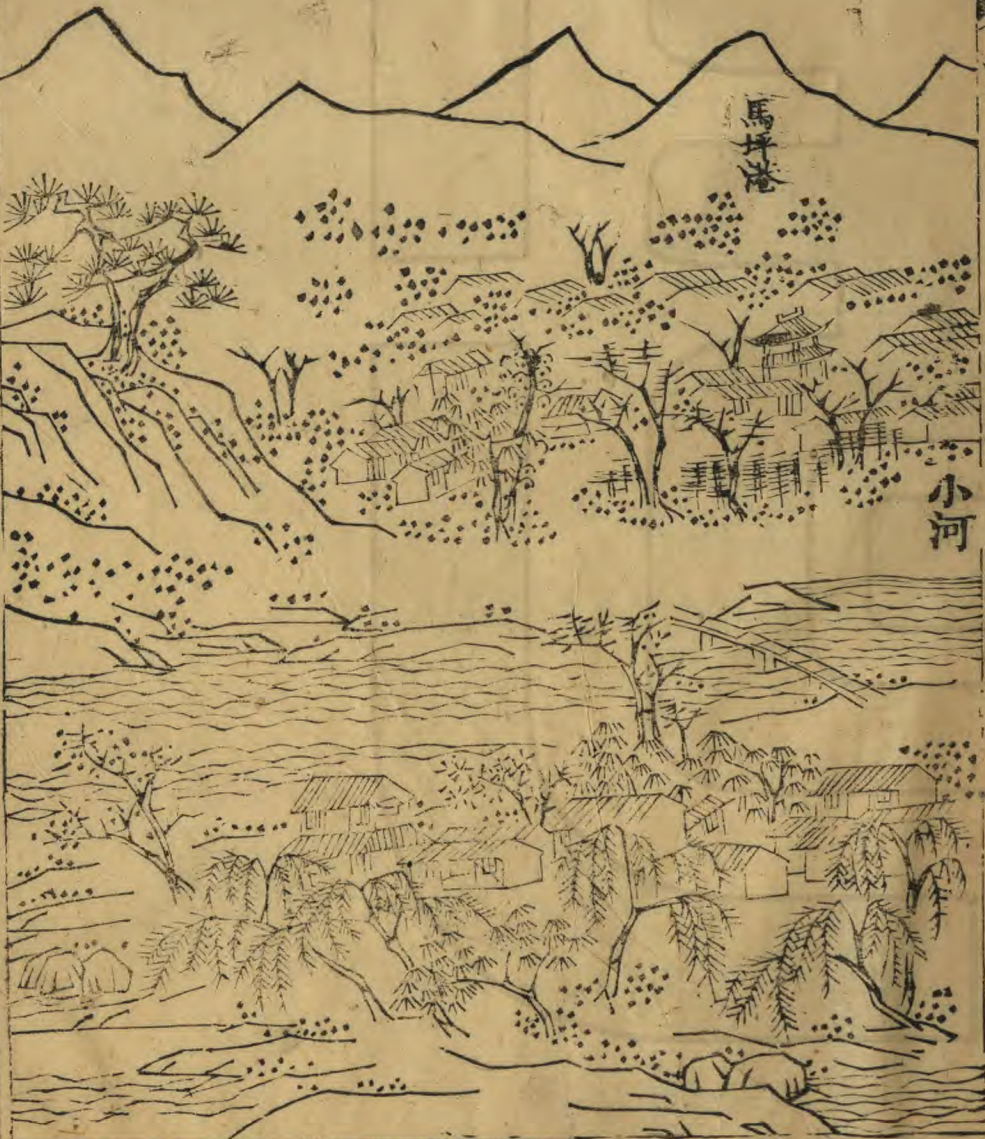 馬坪港
小河